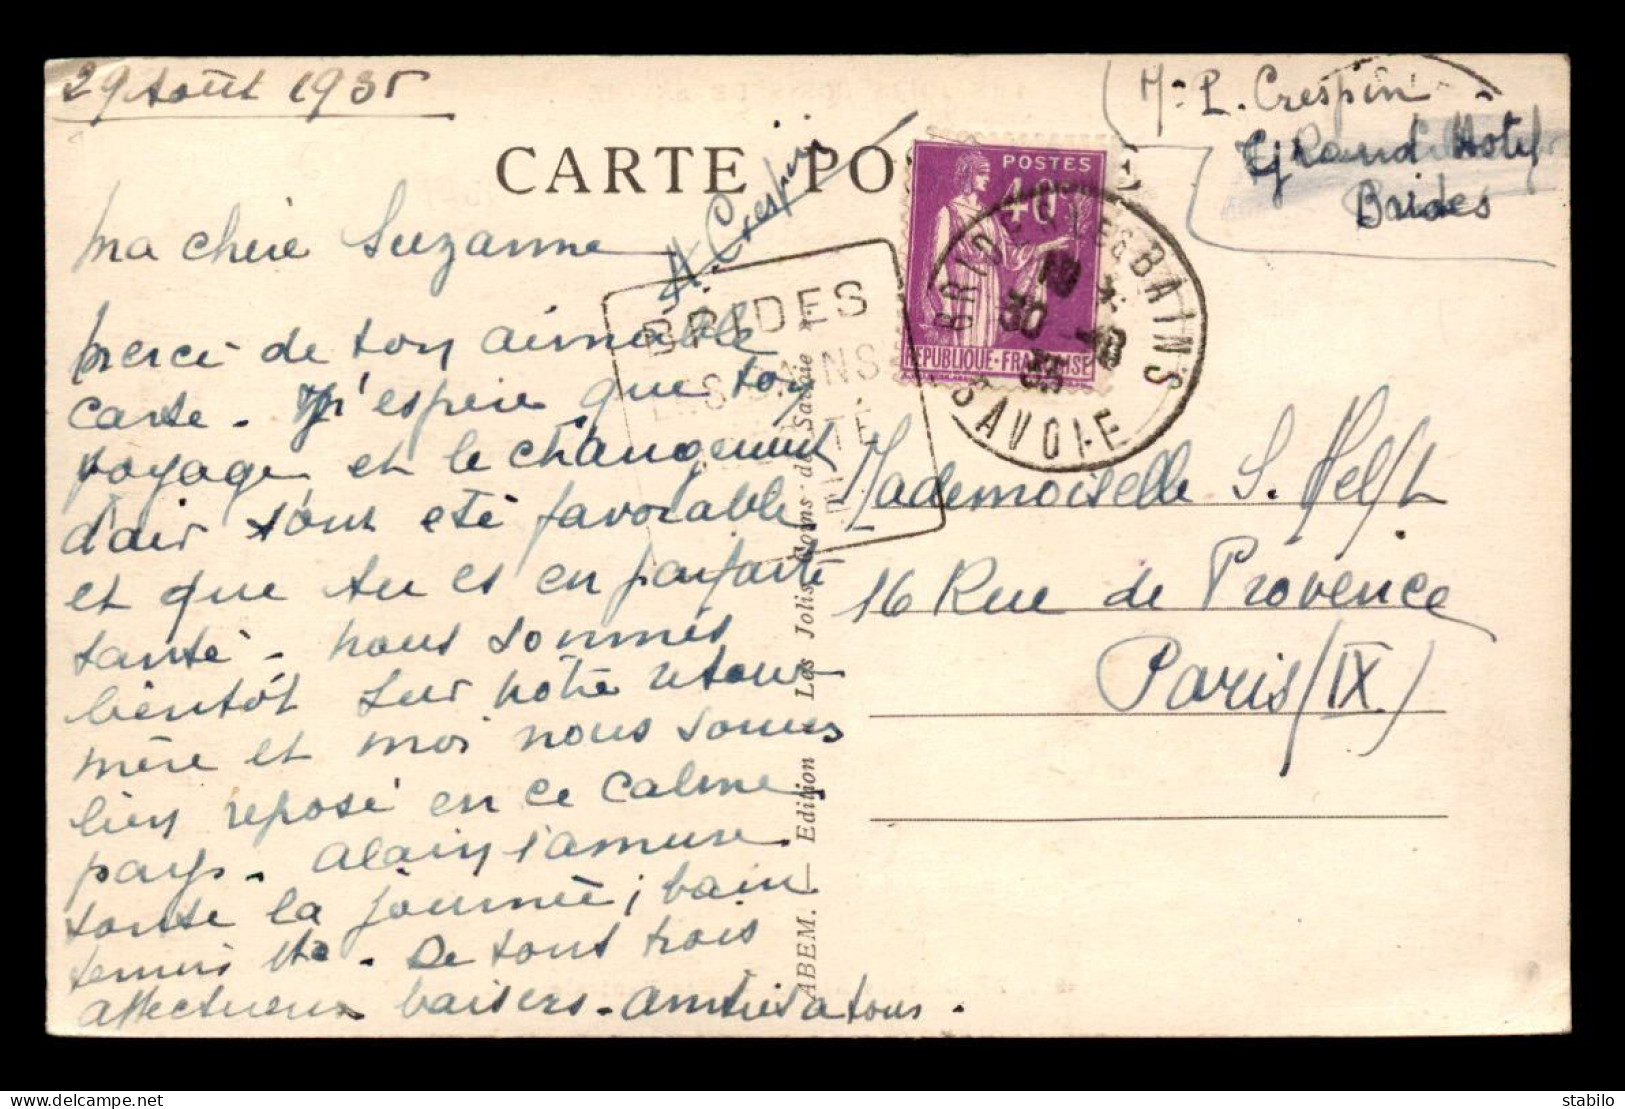 29 Août 1935
M. P. Crespin
Grand Hôtel
Brides
CARTE PO
A. Crespin
Ma chère Suzanne
Merci de ton aimable
carte. J'espère que ton
voyage et le changement
d'air t'ont été favorable
et que tu es en parfaite
santé. Nous sommes
bientôt sur notre retour
mère et moi nous sommes
bien reposé en ce calme
pays. Alain s'amuse
toute la journée; bain
tennis etc. De tous trois
affectueux baisers. Amitiés a tous.
POSTES
40
REPUBLIQUE FRANÇAISE
BRIDES LES BAINS
30 -8
35
SAVOIE
BRIDES
LES BAINS
Mademoiselle S. Helft
16 Rue de Provence
Paris (IX)
ABEM. — Edition Les Jolis Coins de Savoie »
© stabilo
delcampe.net